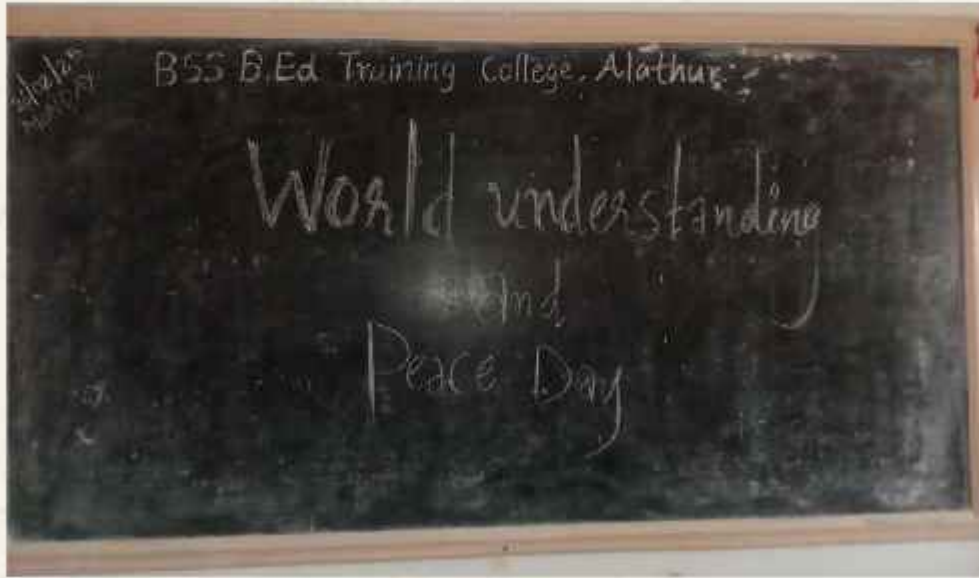 BSS B.Ed Training College, Alathur
World understanding
and
Peace Day